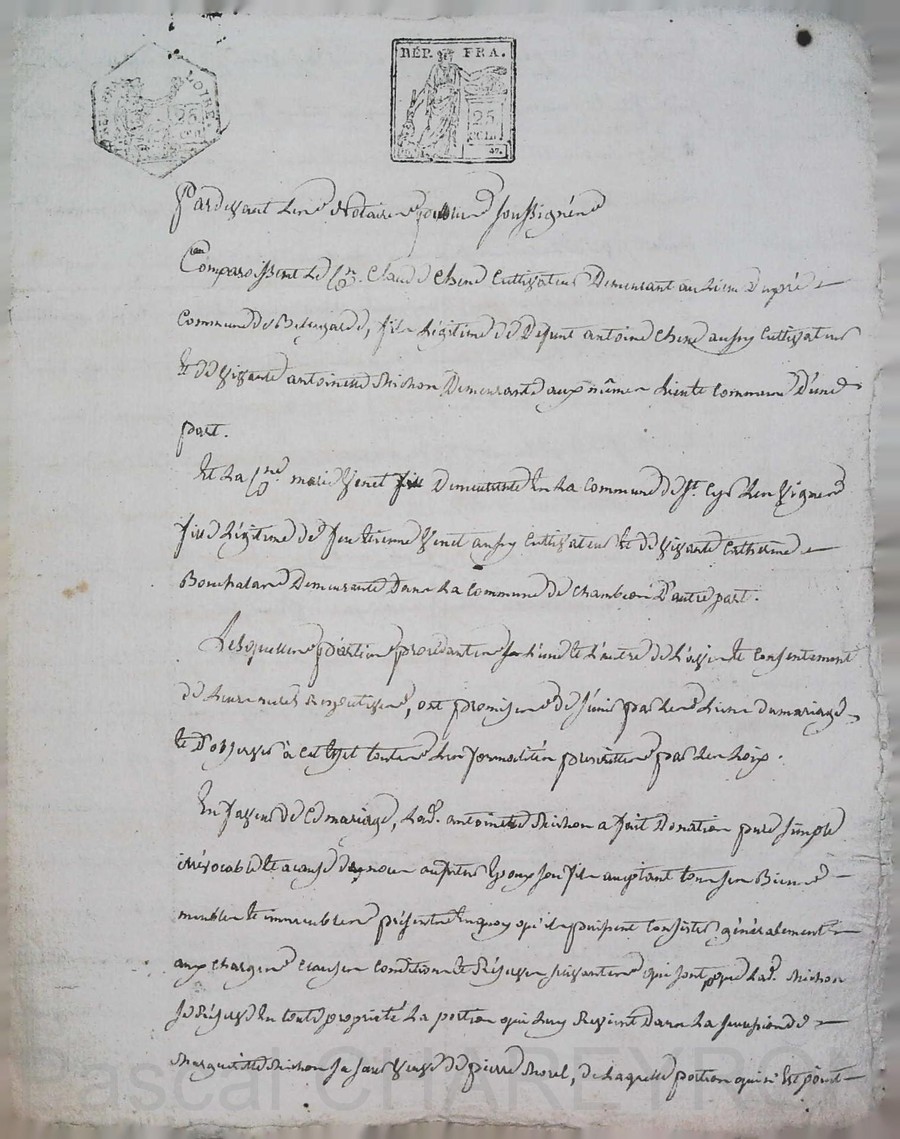 RÉP. FRA. LOIRE 25 CEN.
RÉP. FRA.
25
CEN.
Pardevant Les Notaires soussignés
Comparoissent Le Cn. Claude Chene Cultivateur Demeurant au Lieu Dupré
Commune de Bellegarde, fils Légitime de Défunt antoine Chene aussy Cultivateur
Et de vivante antoinette Michon Demeurante aux mêmes Lieu et Commune D'une
part.
Et La Cne. marie Venet Demeurante En La Commune de St. Cyr Les Vignes
fille Légitime de feu Etienne Venet aussy Cultivateur Et de vivante Catherine
Demeurante Dans La Commune de Chambeon D'autre part.
Lesquelles parties procédantes de L'avis et Consentement
de Leurs mères Respectives, ont promis de s'unir par Les Liens du mariage
Et D'observer à cet Effet toutes Les formalités prescrittes par Les Loix.
En faveur de Ce mariage, Lad. antoinette Michon a fait Donation pure simple
irrévocable Et a cause de noces au futur Epoux son fils acceptant tous ses Biens
meubles Et immeubles présents En quoy qu'ils puissent Consister généralement
aux charges Clauses Conditions Et Réserves suivantes qui sont que Lad. Michon
se Réserve En toute propriété La portion qui Luy Revient Dans La succession de
Margueritte Michon sa sœur Veuve de pierre Morel, de Laquelle portion qui n'Est point
Pascal CHAREYRON